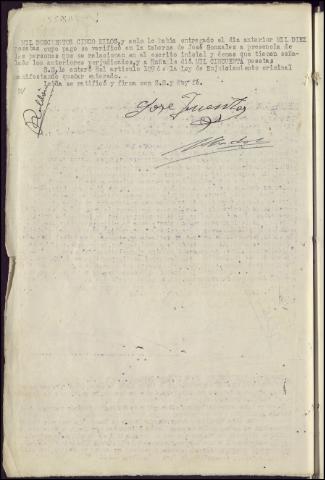 MIL DOSCIENTOS CINCO KILOS, y solo le habia entregado el dia anterior MIL DIEZ
pesetas cuyo pago se verificó en la taberna de José Gonzalez a presencia de
las personas que se relacionan en el escrito inicial y demas que tienen seña-
lado los anteriores perjudicados, y a Maña le dió MIL CINCUENTA pesetas
S.S. le enteró del articulo 109 de la Ley de Enjuiciamiento criminal
manifestando quedar enterado.
Leida se ratificó y firma con S.S. y doy fé.
José Fuentes